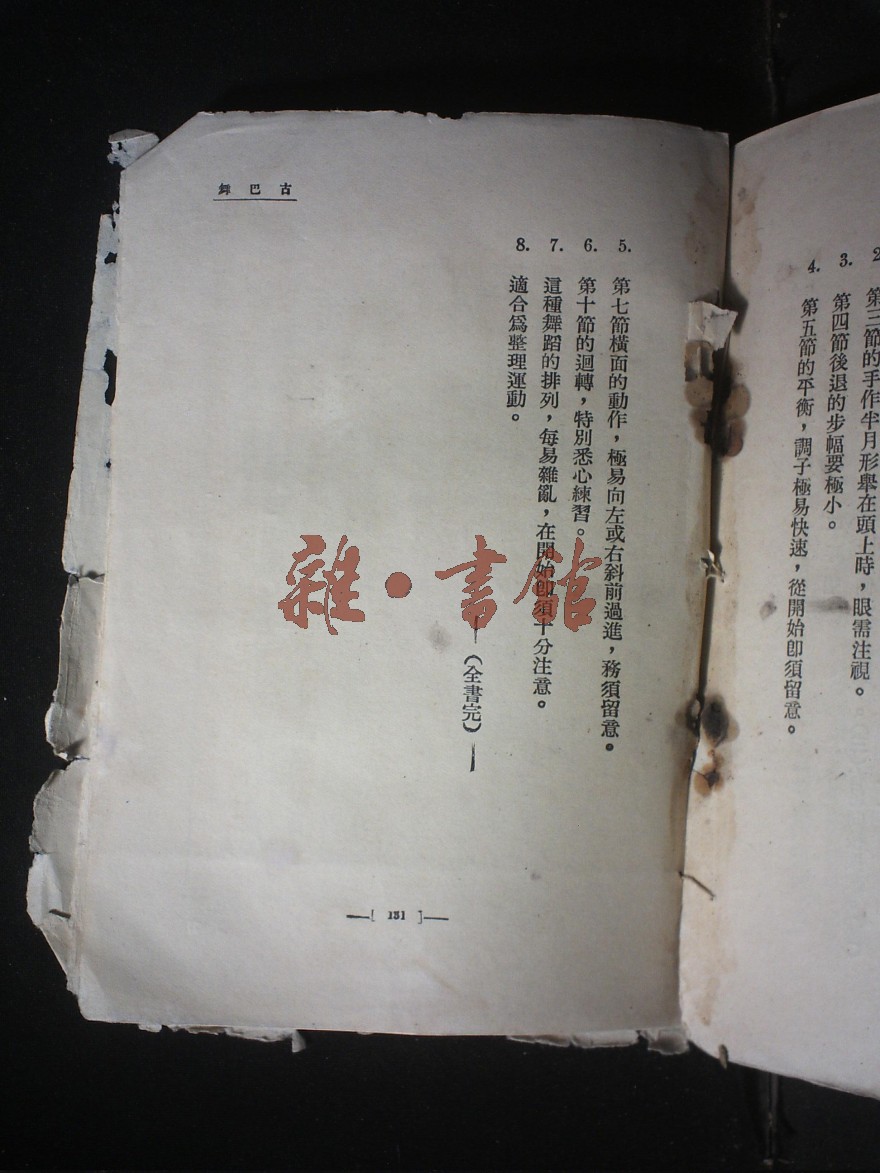 2. 第三節的手作半月形舉在頭上時，眼需注視。
3. 第四節後退的步幅要極小。
4. 第五節的平衡，調子極易快速，從開始卽須留意。
古巴舞
5. 第七節橫面的動作，極易向左或右斜前過進，務須留意。
6. 第十節的迴轉，特別悉心練習。
7. 這種舞蹈的排列，每易雜亂，在開始卽須十分注意。
8. 適合爲整理運動。
—（全書完）—
—[ 131 ]—
雜·書館